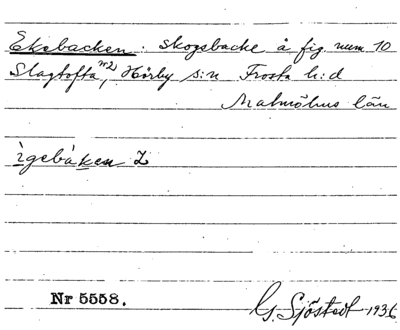 Ekebacken. Skogsbacke å fig. num 10
Slagtofta, Hörby s:n Frosta h:d
Malmöhus län
ìgebàken 2
Nr 5558.
G. Sjöstedt 1936